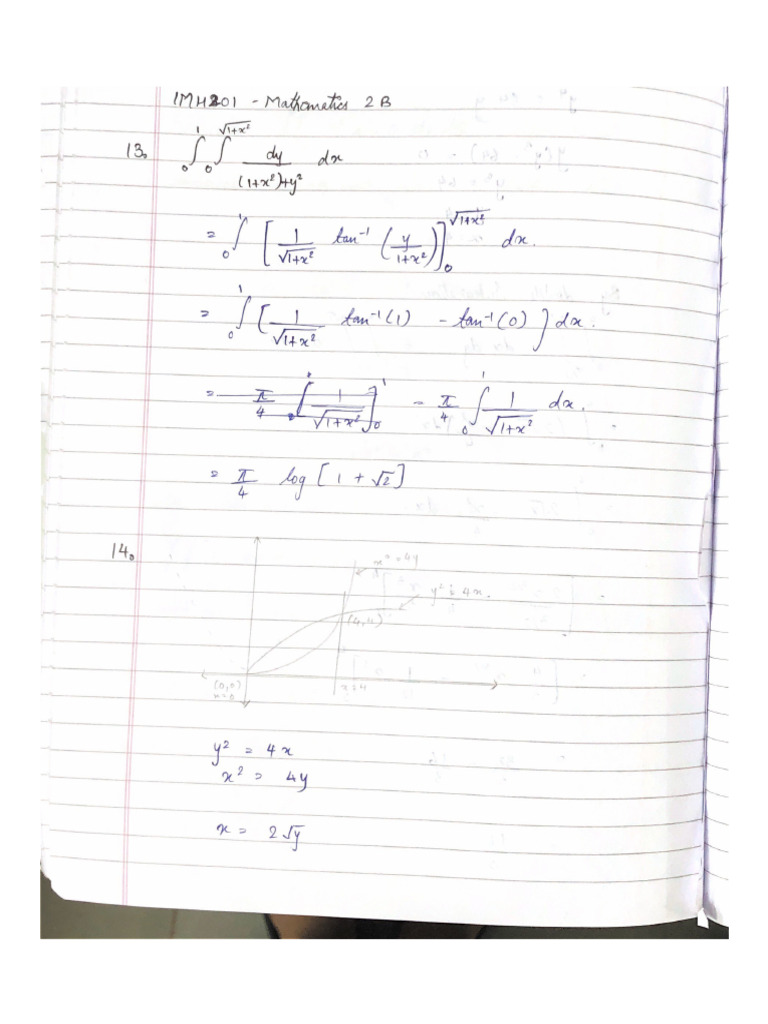 1MH201 - Mathematics 2B
13. ∫₀¹ ∫₀^√(1+x²) dy / ((1+x²)+y²) dx
= ∫₀¹ [ 1/√(1+x²) tan⁻¹ ( y/(1+x²) ) ]₀^√(1+x²) dx.
= ∫₀¹ [ 1/√(1+x²) tan⁻¹(1) - tan⁻¹(0) ] dx.
= π/4 [ 1/√(1+x²) ]₀¹ = π/4 ∫₀¹ 1/√(1+x²) dx.
= π/4 log [ 1 + √2 ]
14.
x² = 4y
y² = 4x.
(4,4)
(0,0)
x=0
x=4
y² = 4x
x² = 4y
x = 2√y